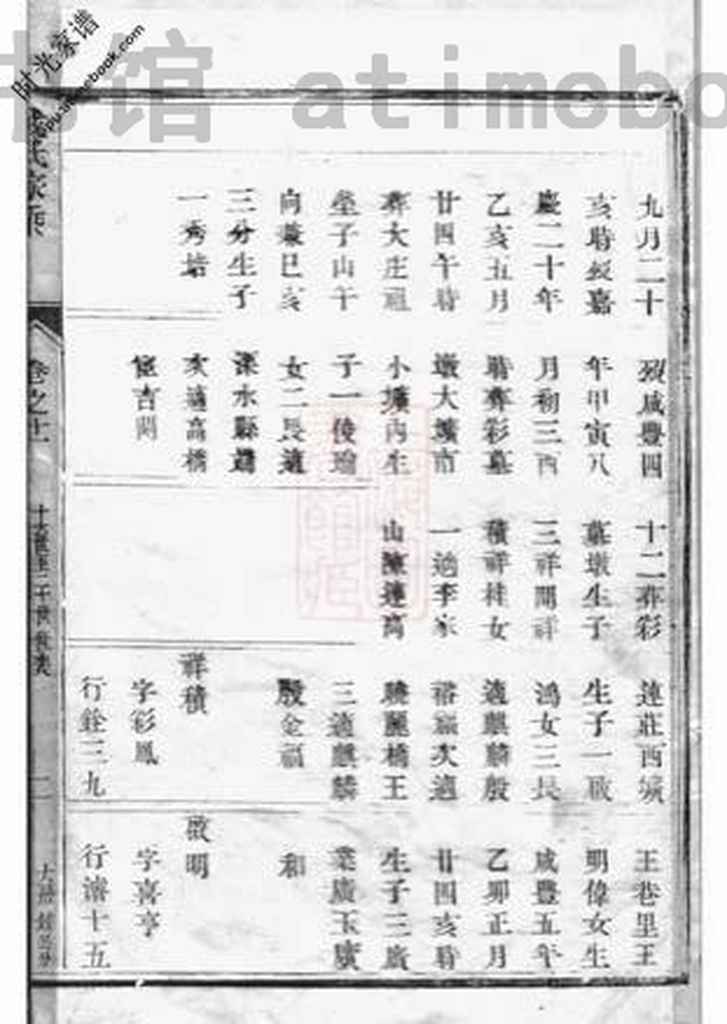 九月二十
亥時歿嘉
慶二十年
乙亥五月
廿四午時
葬大庄祖
塋子山午
向兼巳亥
三分生子
一秀培
歿咸豐四
年甲寅八
月初三酉
時葬彩墓
墩大壙市
小壙內生
子一俊瑜
女二長適
溧水縣趙
次適高橋
恆吉
十二葬彩
墓墩生子
三祥開祥
積祥桂女
一適李家
山陳蓮高
蓮莊西壙
生子一啟
鴻女三長
適麒麟殷
裕源次適
曉麗橋王
三適麒麟
殷金福
祥積
字彩鳳
行銓三九
王巷里王
明偉女生
咸豐五年
乙卯正月
廿四亥時
生子三廣
業廣玉廣
和
啟明
字喜亭
行濟十五
氏家乘
卷之十一
十六世至二十世世表
时光家谱
pu.atimebook.com
书馆 atimebo